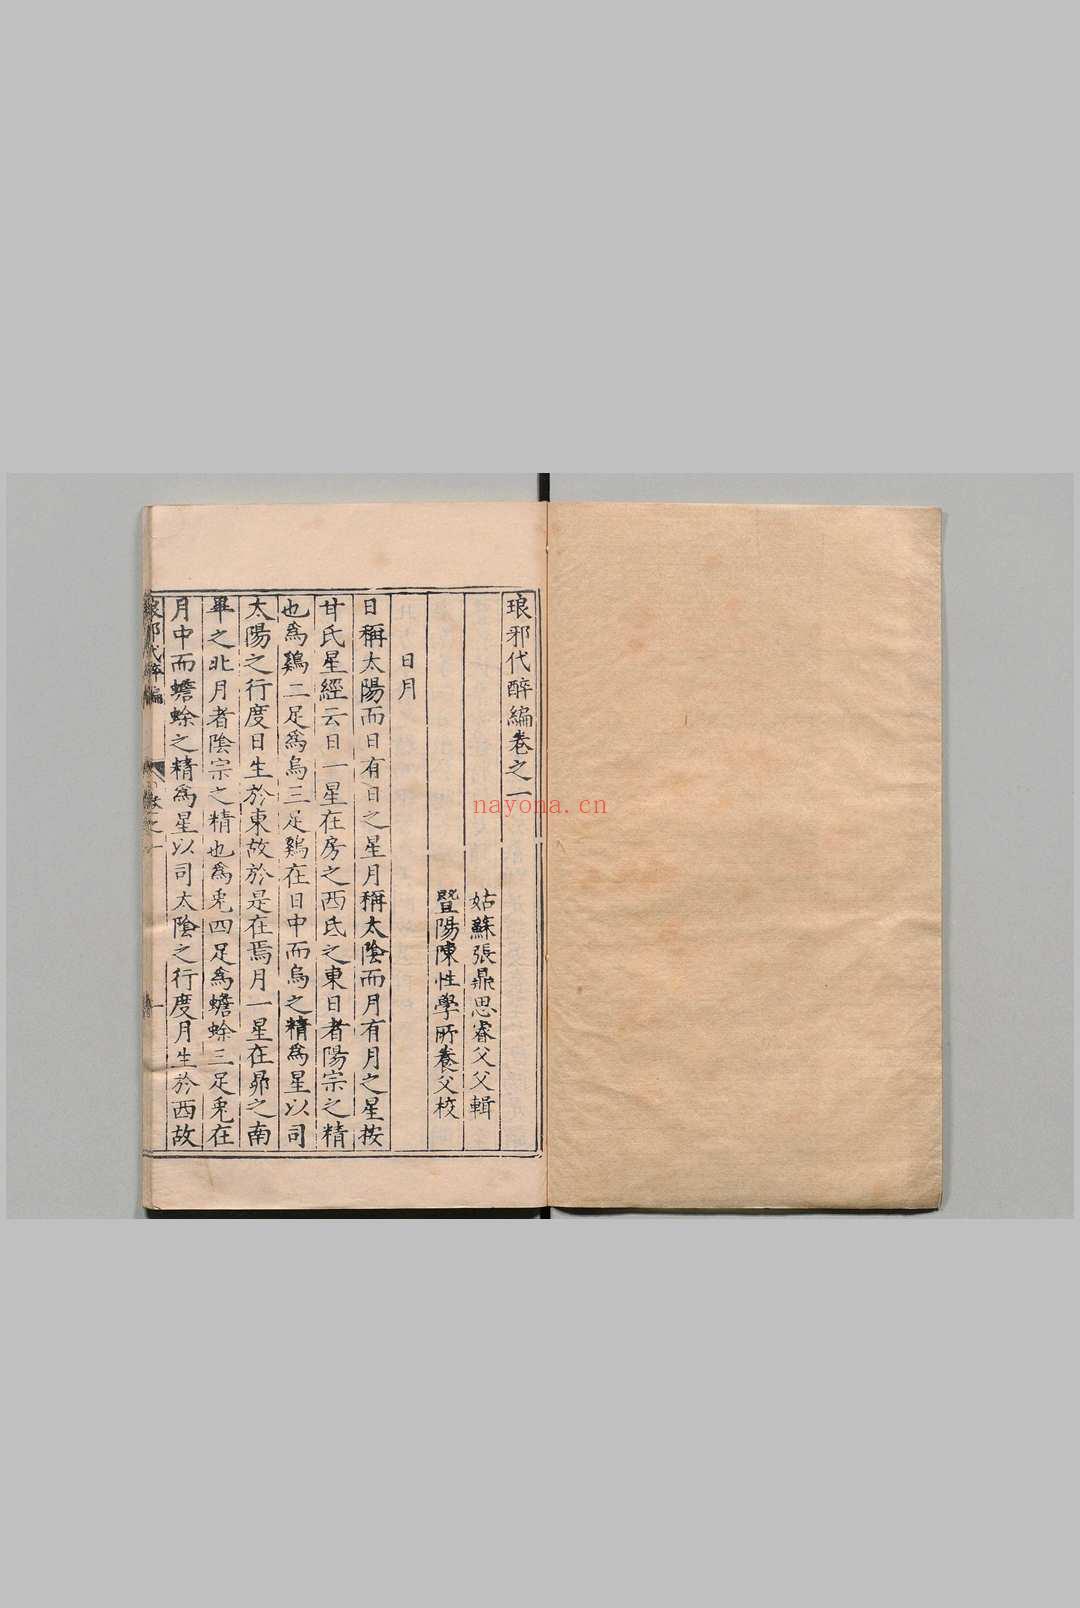 琅邪代醉編卷之一
姑蘇張鼎思睿父父輯
暨陽陳性學所養父校
日月
日稱太陽而日有日之星月稱太陰而月有月之星按
甘氏星經云日一星在房之西氐之東日者陽宗之精
也為鷄二足為烏三足鷄在日中而烏之精為星以司
太陽之行度日生於東故於是在焉月一星在昴之南
畢之北月者陰宗之精也為兎四足為蟾蜍三足兎在
月中而蟾蜍之精為星以司太陰之行度月生於西故
琅邪代醉編
卷之一
一
nayona.cn